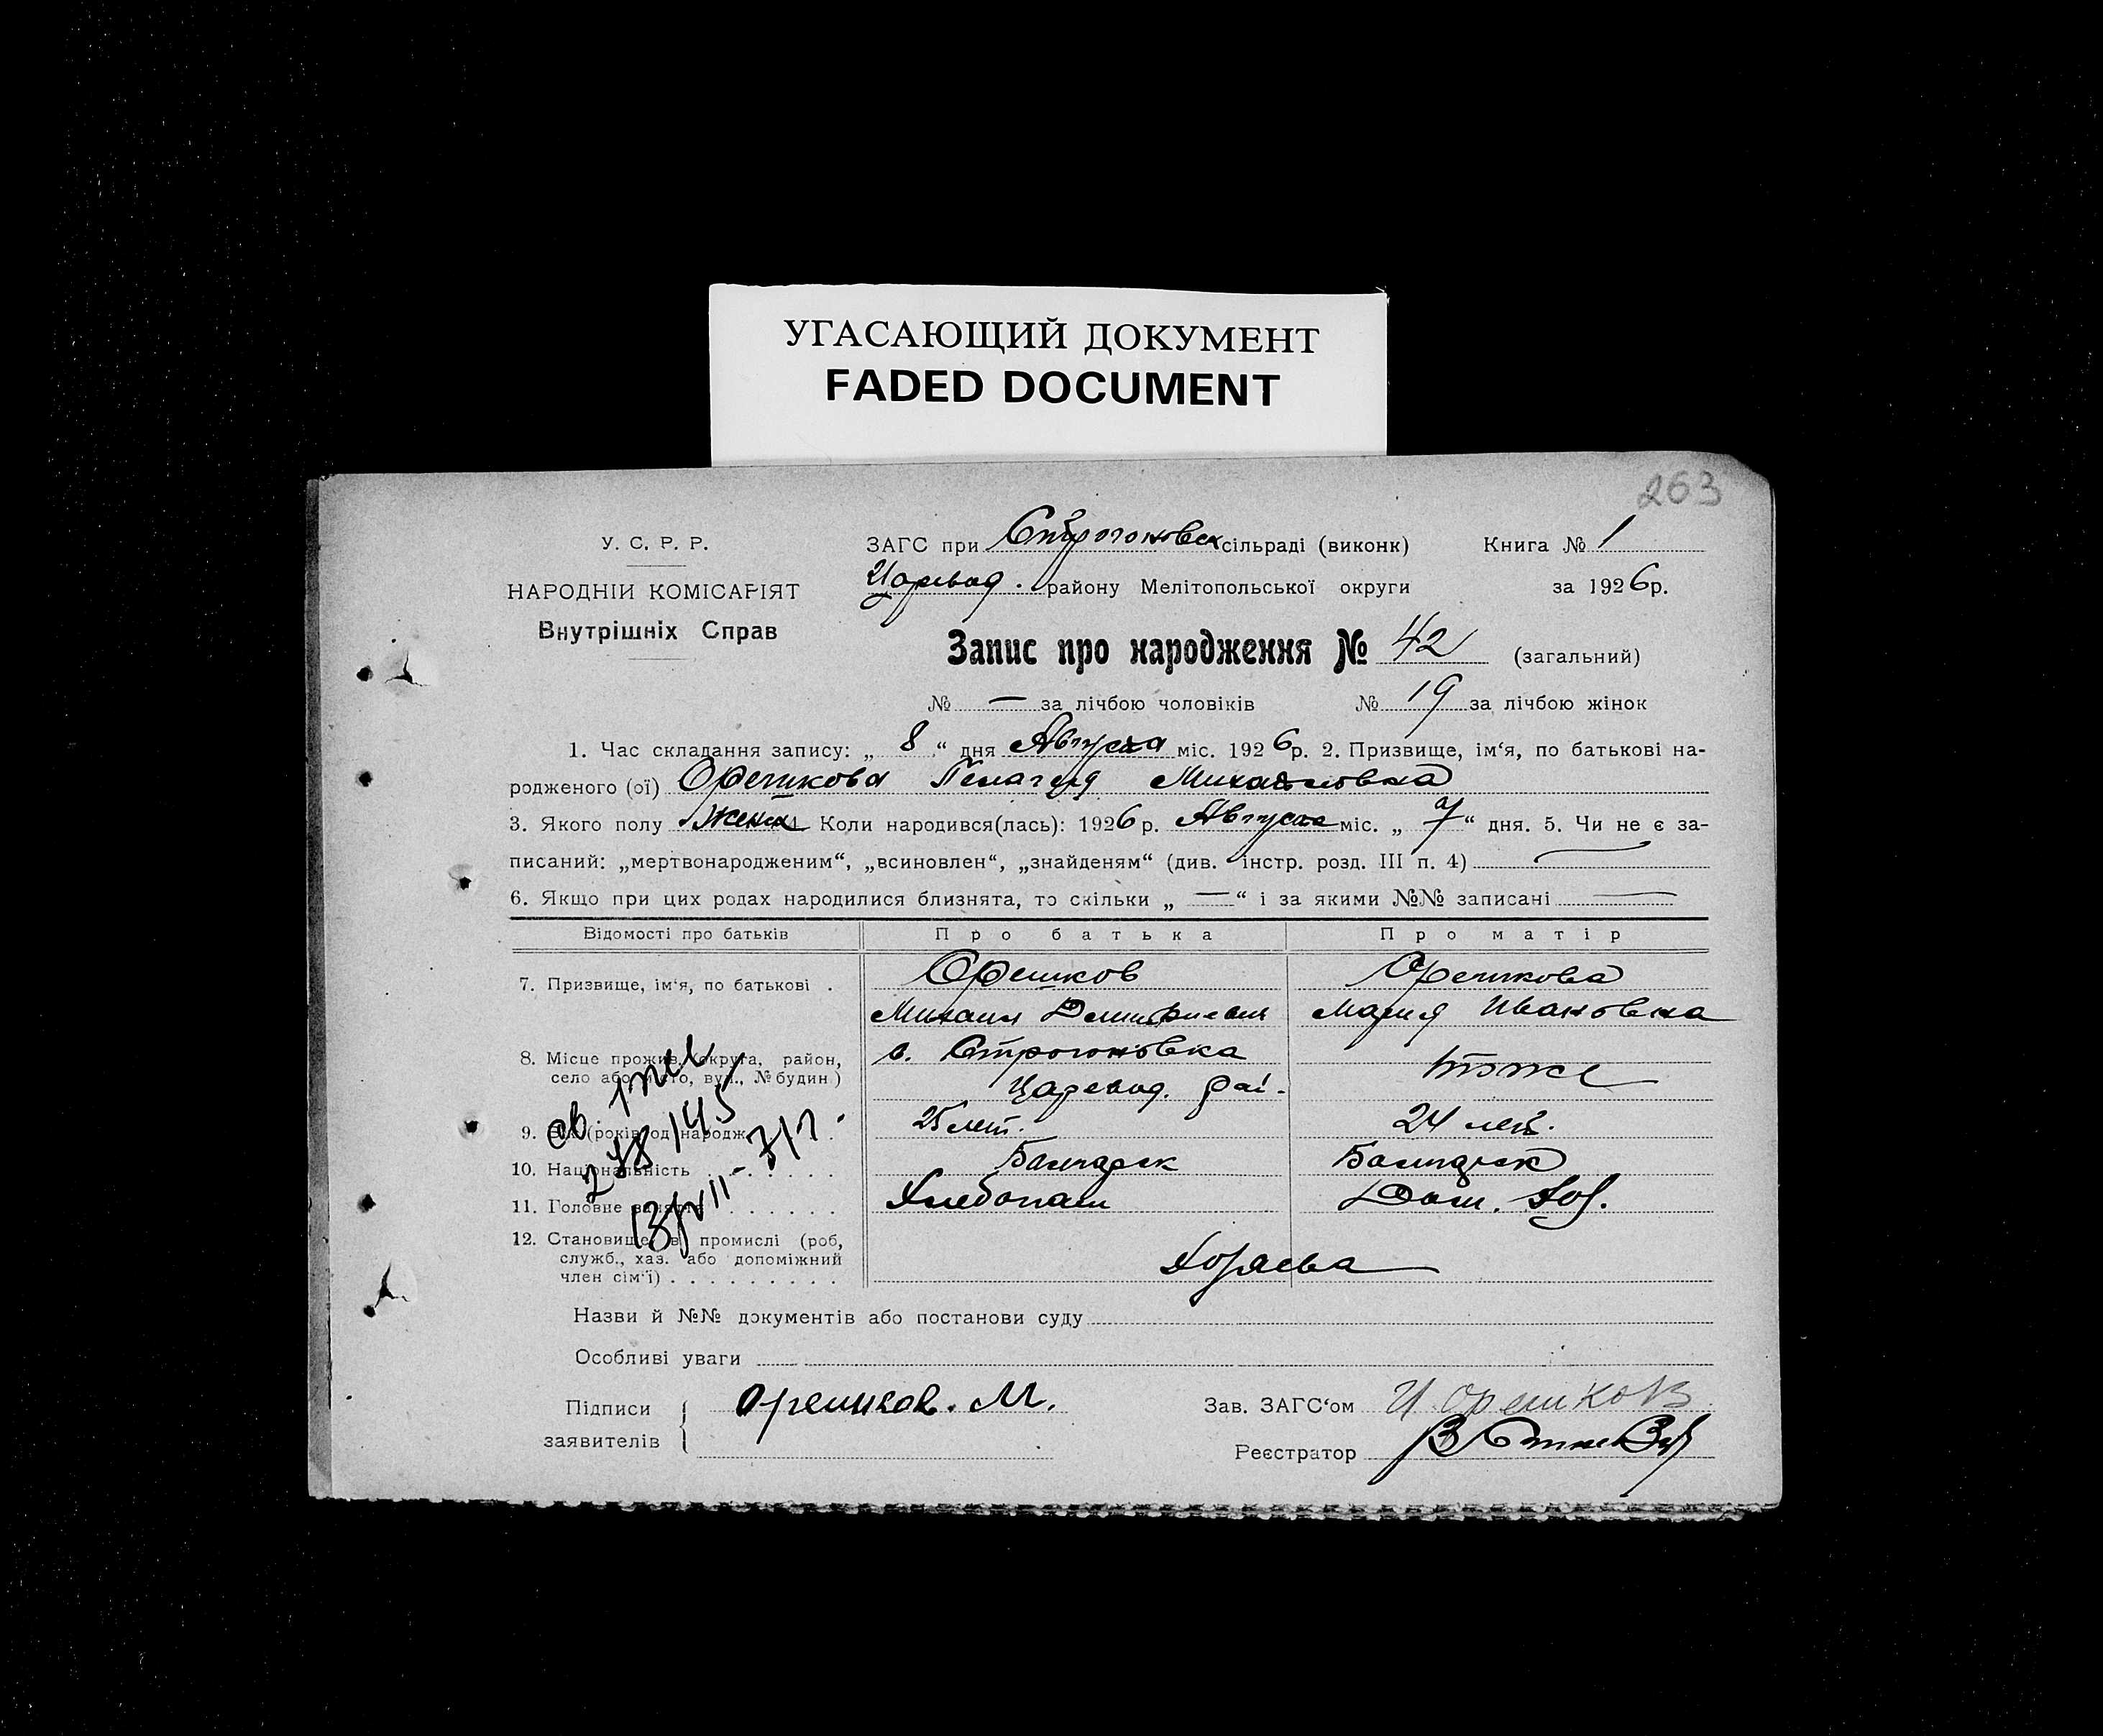 УГАСАЮЩИЙ ДОКУМЕНТ
FADED DOCUMENT
263
У. С. Р. Р.
НАРОДНІЙ КОМІСАРІЯТ
Внутрішніх Справ
ЗАГС при Строгоновск сільраді (виконк) Книга № 1
Царевод. району Мелітопольської округи за 1926р.
Запис про народження № 42 (загальний)
№ — за лічбою чоловіків № 19 за лічбою жінок
1. Час складання запису: „ 8 “ дня Августа міс. 1926р. 2. Призвище, ім‘я, по батькові на-
родженого (ої) Орешкова Пелагея Михайловна
3. Якого полу Женск 4. Коли народився(лась): 1926р. Августа міс. „ 7 “ дня. 5. Чи не є за-
писаний: „мертвонародженим“, „всиновлен“, „знайденям“ (див. інстр. розд. III п. 4) —
6. Якщо при цих родах народилися близнята, то скільки „ — “ і за якими №№ записані —
Відомості про батьків Про батька Про матір
7. Призвище, ім‘я, по батькові . Орешков Орешкова
Михаил Дмитриевич Мария Ивановна
8. Місце прожив. (округа, район, с. Строгоновка тоже
село або місто, вул., № будин) Царевод. рай.
9. Вік (років од народж. 25 лет. 24 лет.
10. Національність Болгарск Болгарск
11. Головне заняття Хлебопаш Дом. Хоз.
12. Становище в промислі (роб,
служб., хаз. або допоміжний
член сім‘ї) Хозяева
св.
278/145
13/VII-
Назви й №№ документів або постанови суду
Особливі уваги
Підписи Орешков. М. Зав. ЗАГС‘ом И Орешков
заявителів Реєстратор